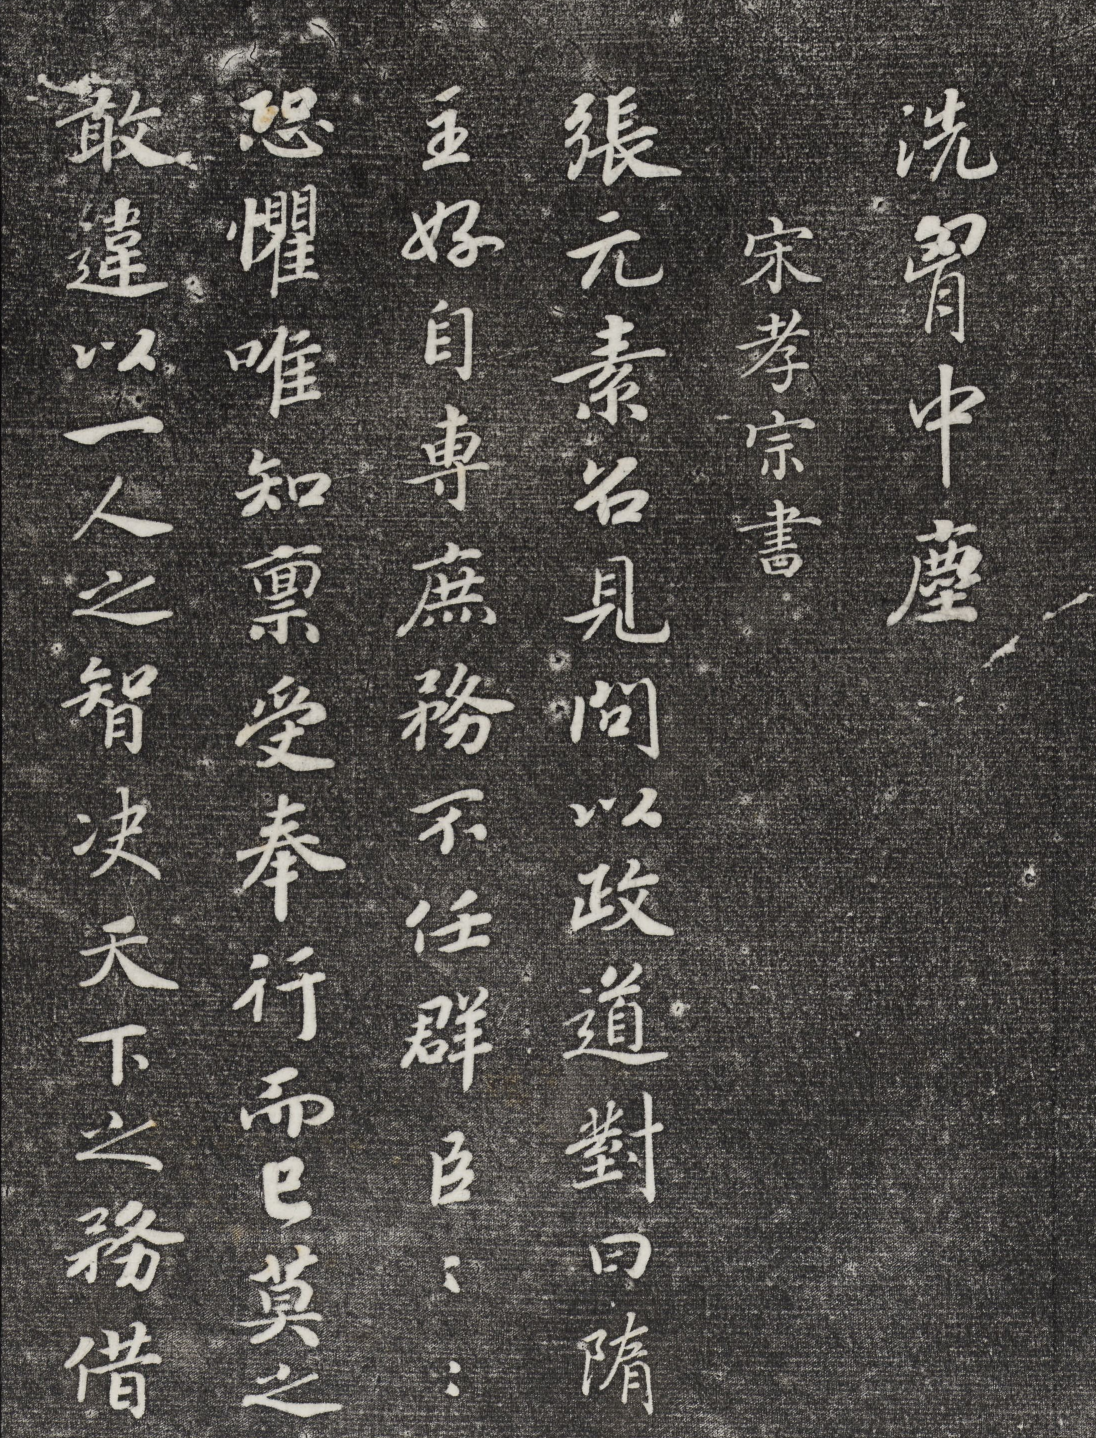 洗胷中塵
宋孝宗書
張元素召見問以政道對曰隋
主好自專庶務不任群臣〻〻
恐懼唯知稟受奉行而已莫之
敢違以一人之智决天下之務借